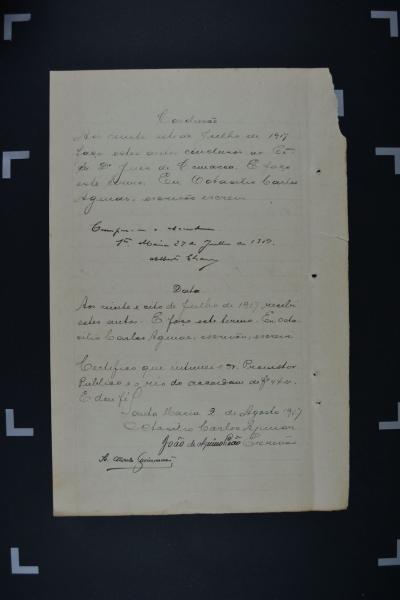 Conclusão
Aos vinte e sete de Julho de 1917
faço estes autos conclusos ao
Dr. Juiz de Comarca. E faço
este termo. Eu Octasilio Carlos
Aguiar, escrivão escrevi
Cumpra-se o
Sta. Maria 27 de Julho de 1917.
Data
Aos vinte e oito de Julho de 1917, recebi
estes autos. E faço este termo. Eu, Octa-
silio Carlos Aguiar, escrivão, escrevi
Certifico que intimei o Dr. Promotor
Publico e o réo do accordam de fs 44 v.
E dou fé.
Santa Maria 2 de Agosto 1917
Octasilio Carlos Aguiar
João de Escrivão
A.